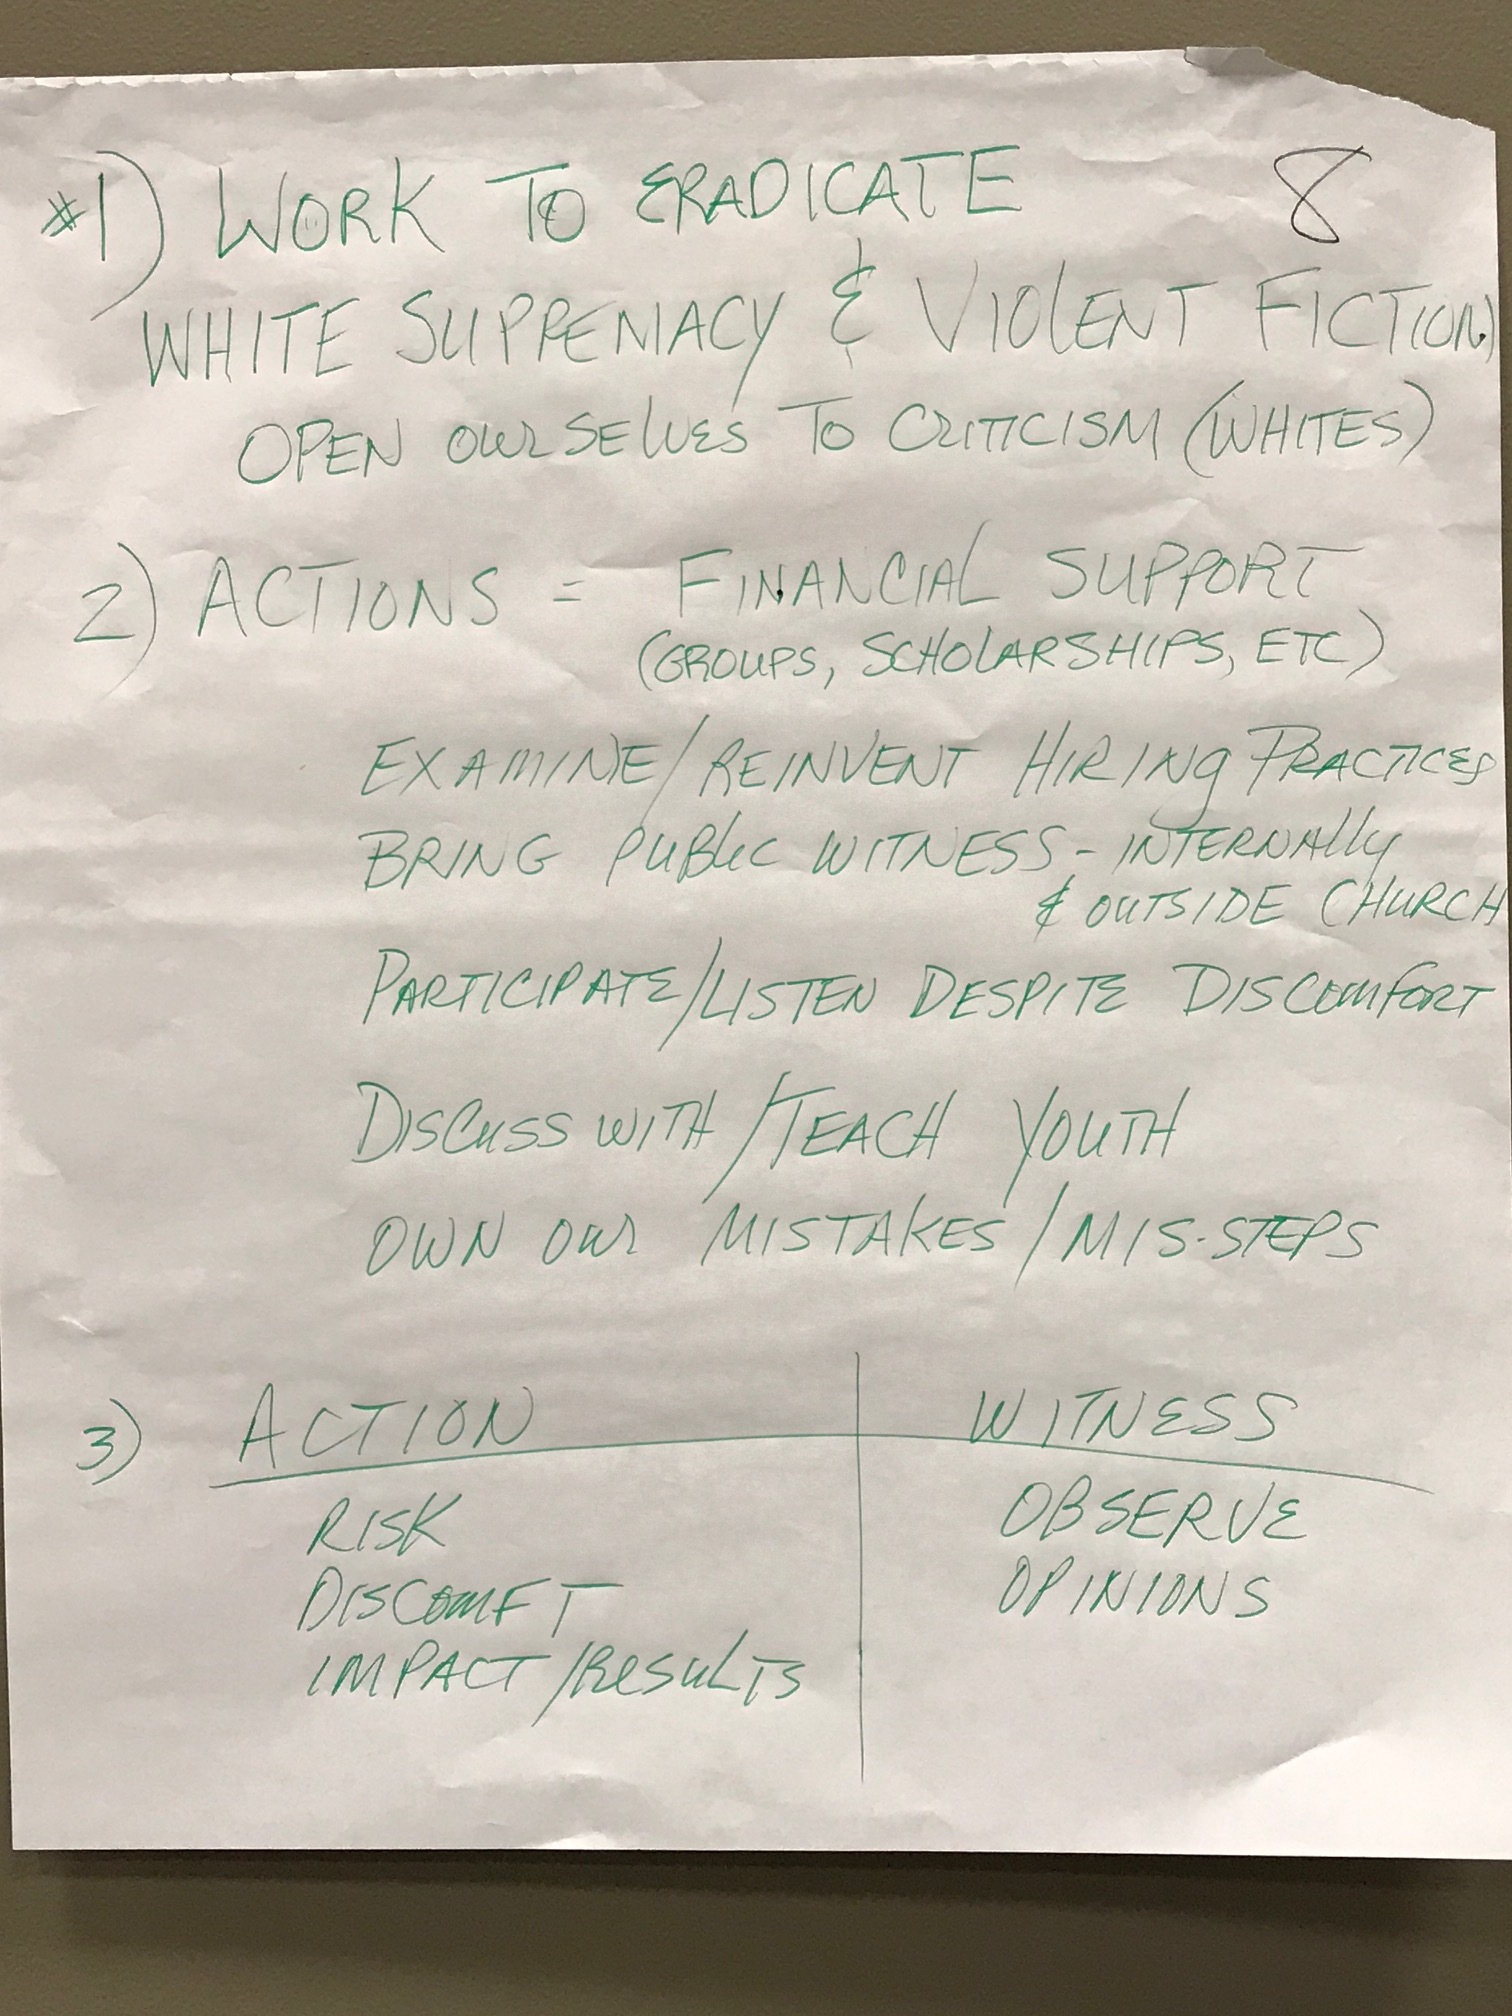 #1) WORK TO ERADICATE 8
WHITE SUPREMACY & VIOLENT FICTION)
OPEN OURSELVES TO CRITICISM (WHITES)
2) ACTIONS = FINANCIAL SUPPORT
(GROUPS, SCHOLARSHIPS, ETC)
EXAMINE/REINVENT HIRING PRACTICES
BRING PUBLIC WITNESS - INTERNALLY
& OUTSIDE CHURCH
PARTICIPATE/LISTEN DESPITE DISCOMFORT
DISCUSS WITH/TEACH YOUTH
OWN OUR MISTAKES/MIS-STEPS
3) ACTION WITNESS
RISK OBSERVE
DISCOMFT OPINIONS
IMPACT/RESULTS